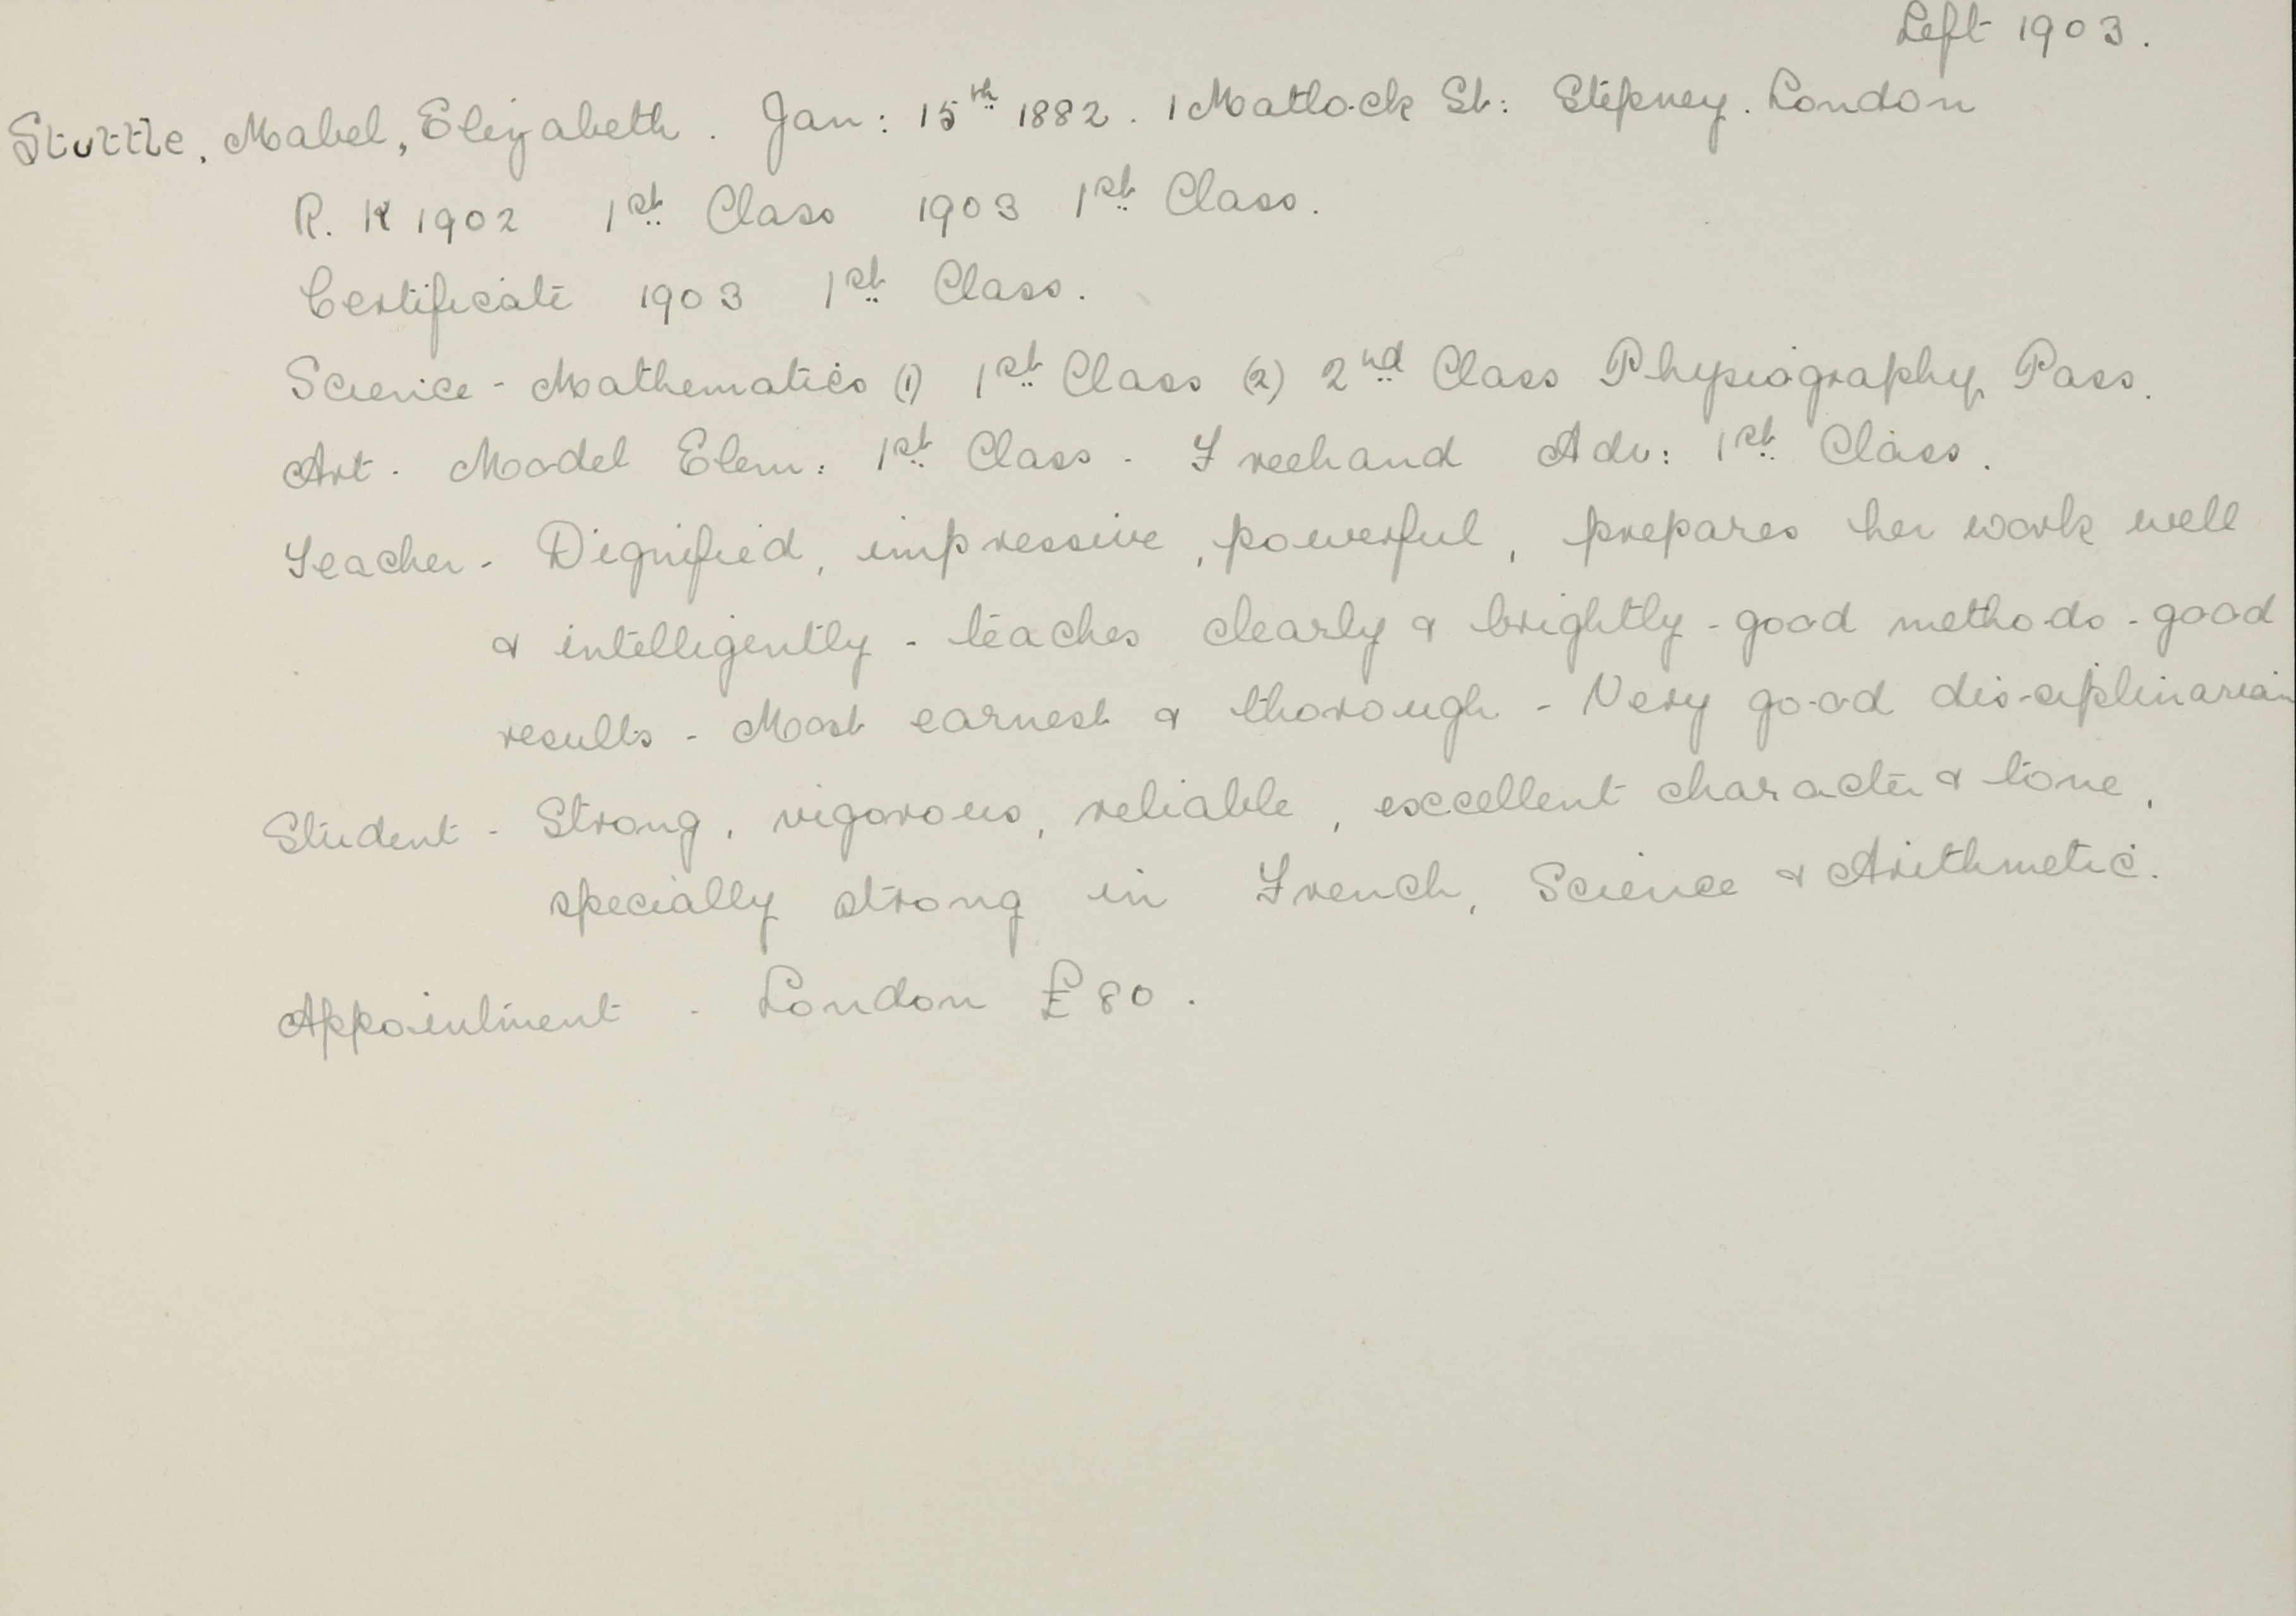 Left 1903.
Stuttle, Mabel, Elizabeth. Jan: 15th 1882. 1 Matlock St: Stepney. London
R. K 1902 1st Class 1903 1st Class.
Certificate 1903 1st Class.
Science - Mathematics (1) 1st Class (2) 2nd Class Physiography Pass.
Art. Model Elem: 1st Class - Freehand Adv: 1st Class.
Teacher - Dignified, impressive, powerful, prepares her work well
& intelligently - teaches clearly & brightly - good methods - good
results - Most earnest & thorough - Very good disciplinarian
Student - Strong, vigorous, reliable, excellent character & tone,
specially strong in French, Science & Arithmetic.
Appointment - London £80.